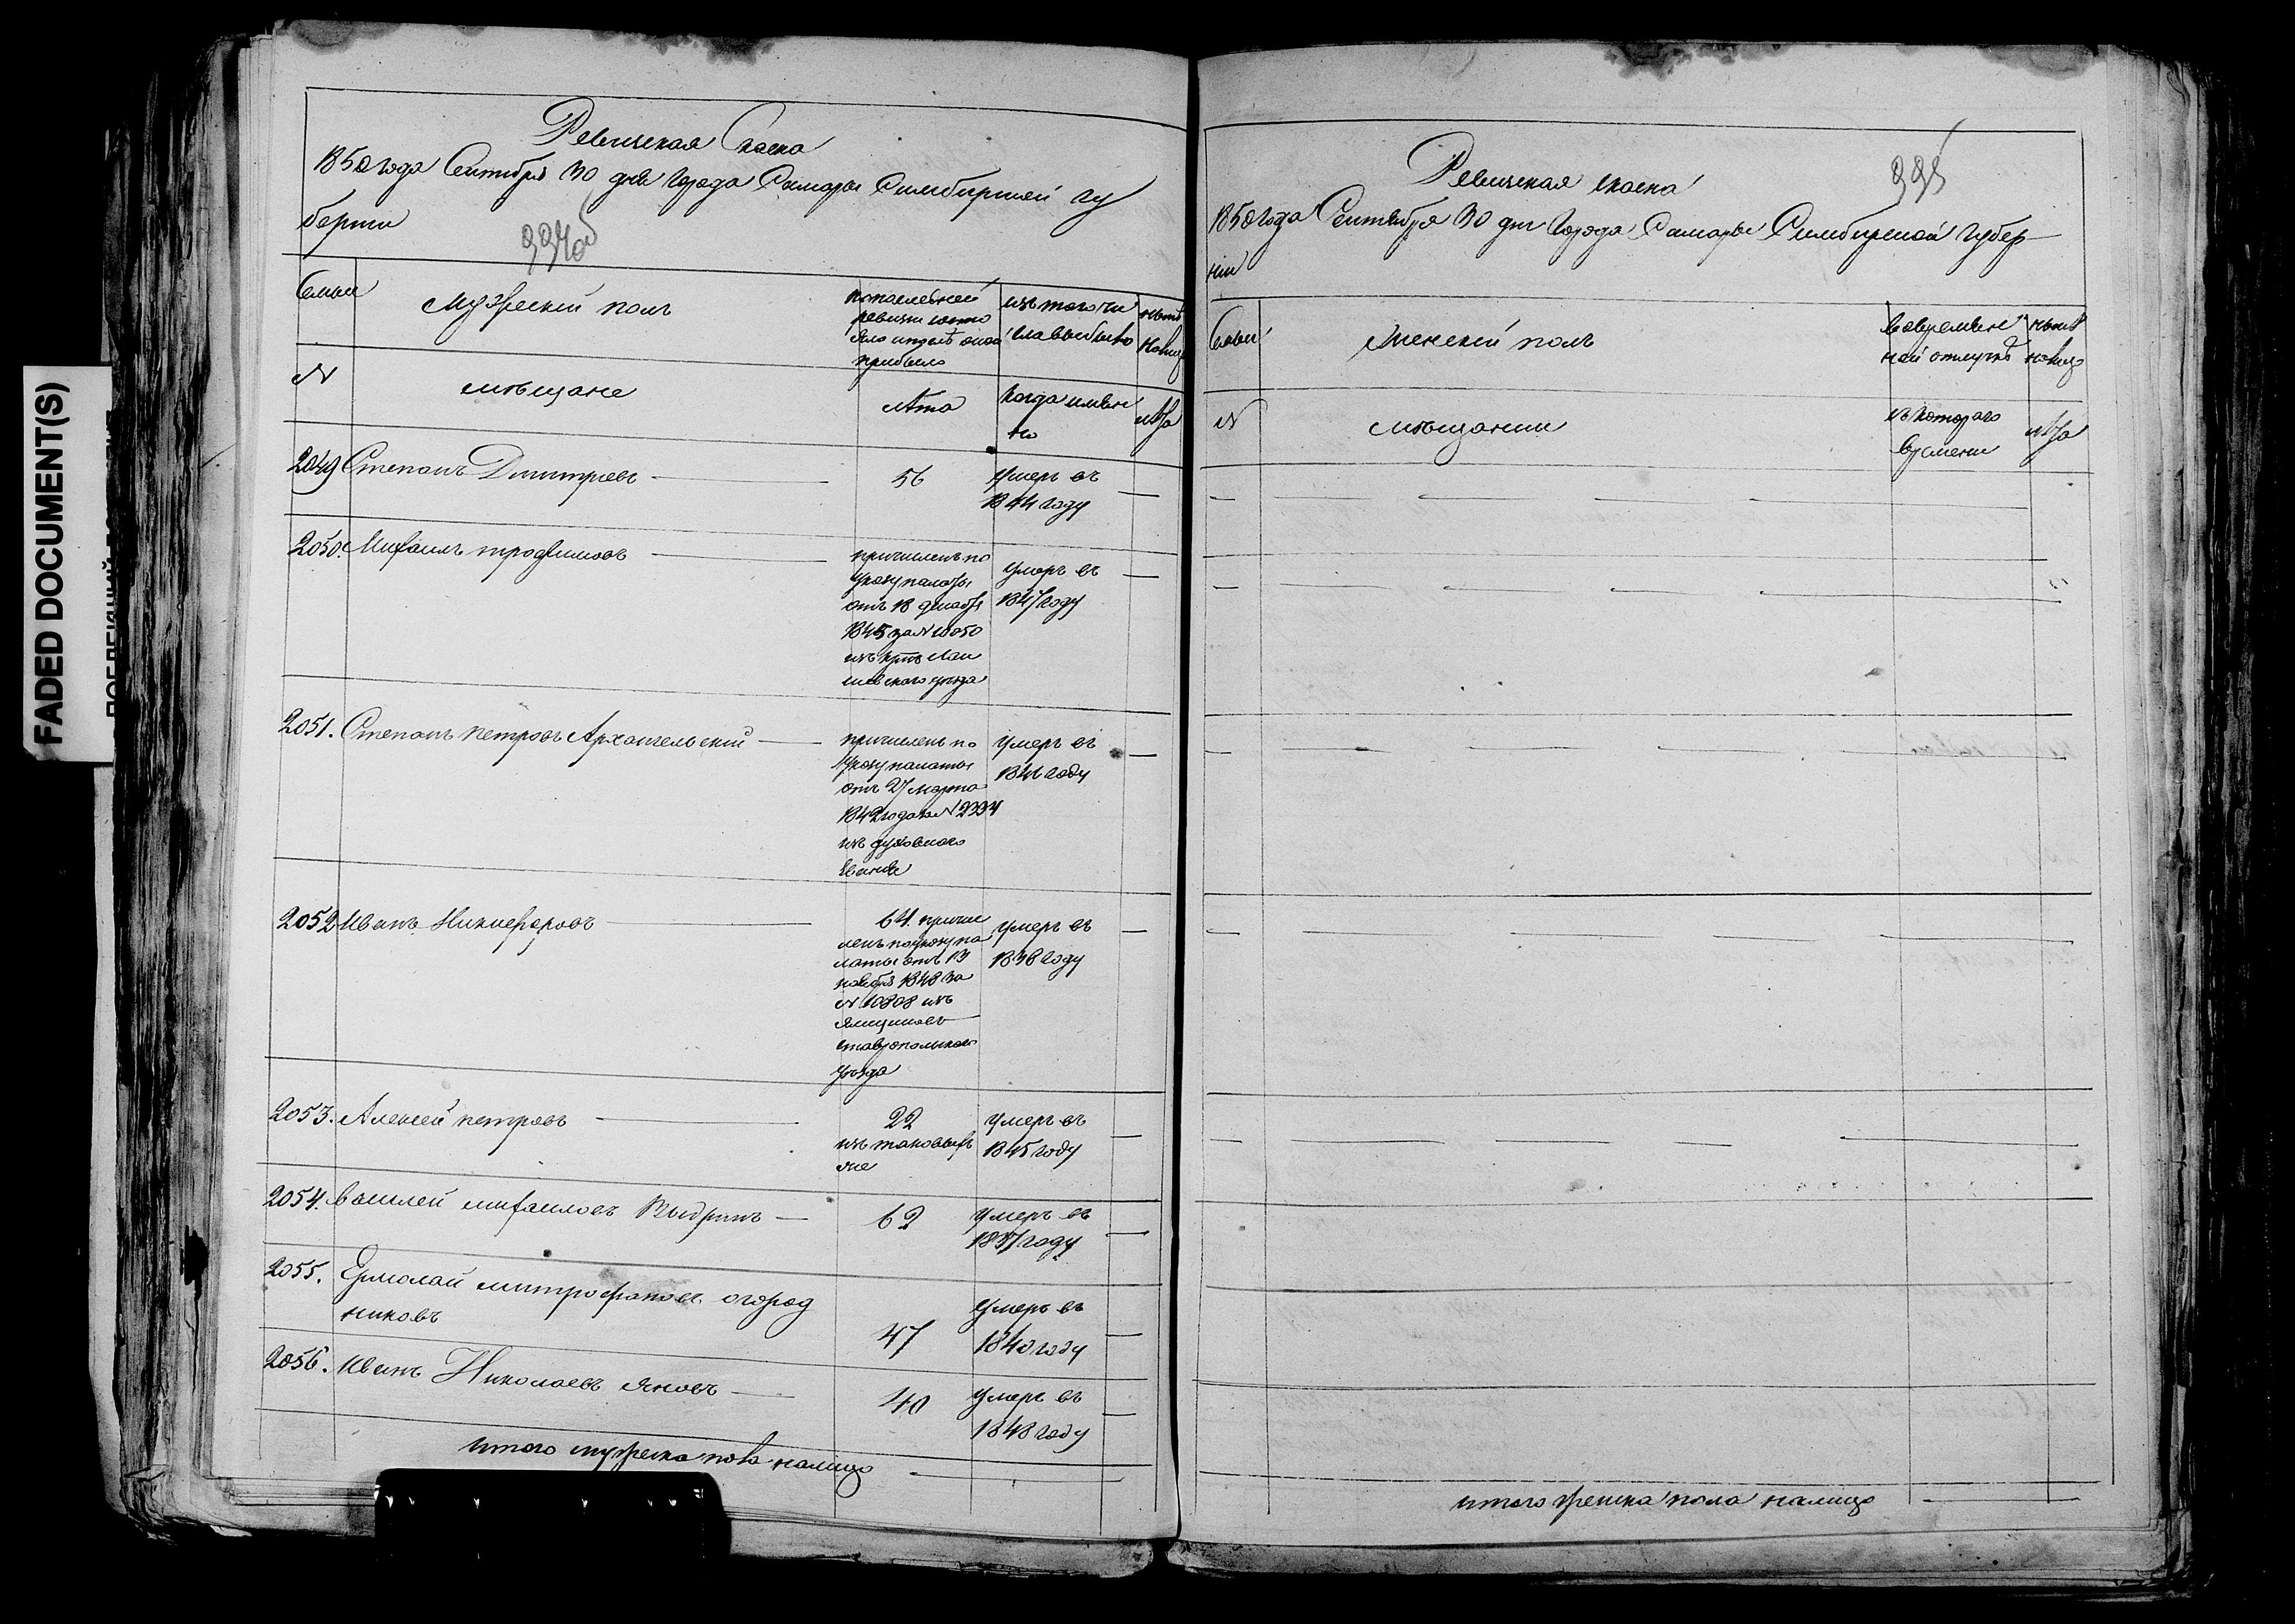 FADED DOCUMENT(S)
Ревизская Скаска
1850 года Сентября 30 дня Города Самары Симбирской гу
бернии
Семьи
Мужеский полъ
по последней
ревизии состо
яло и после оной
прибыло
изъ того чи
сла выбыло
ныне
на лицо
N
мѣщане
лѣта
когда имян
но
лѣта
2049 Степанъ Дмитриевъ
56
умеръ въ
1844 году
2050. Михаилъ трофимовъ
причисленъ по
указу палаты
отъ 18 декабря
1845 за N 10050
умеръ въ
1847 году
2051. Степанъ петровъ Архангельский
причисленъ по
указу палаты
отъ 27 марта
1842 года за N 2334
изъ духовного
звания
умеръ въ
1846 году
2052 Иванъ Никифоровъ
64. причис
ленъ по указу па
латы отъ 13
ноября 1848 за
N 10808 изъ
ямщиковъ
ставропольскаго
уезда
умеръ въ
1838 году
2053. Алексей петровъ
22
изъ таковыхъ
же
умеръ въ
1845 году
2054. василей михаиловъ Выдринъ
62
умеръ въ
1837 году
2055. Ермолай митрофановъ огород
никовъ
47
умеръ въ
1840 году
2056. Иванъ Николаевъ яновъ
40
умеръ въ
1848 году
итого мужеска пола на лицо
Ревизская скаска
335
1850 года Сентября 30 дня Города Самары Симбирской губер-
нии
Семьи
женский полъ
во времен
ной отлучке
ныне
на лицо
N
мѣщанки
съ котораго
времени
лѣта
итого женска пола на лицо